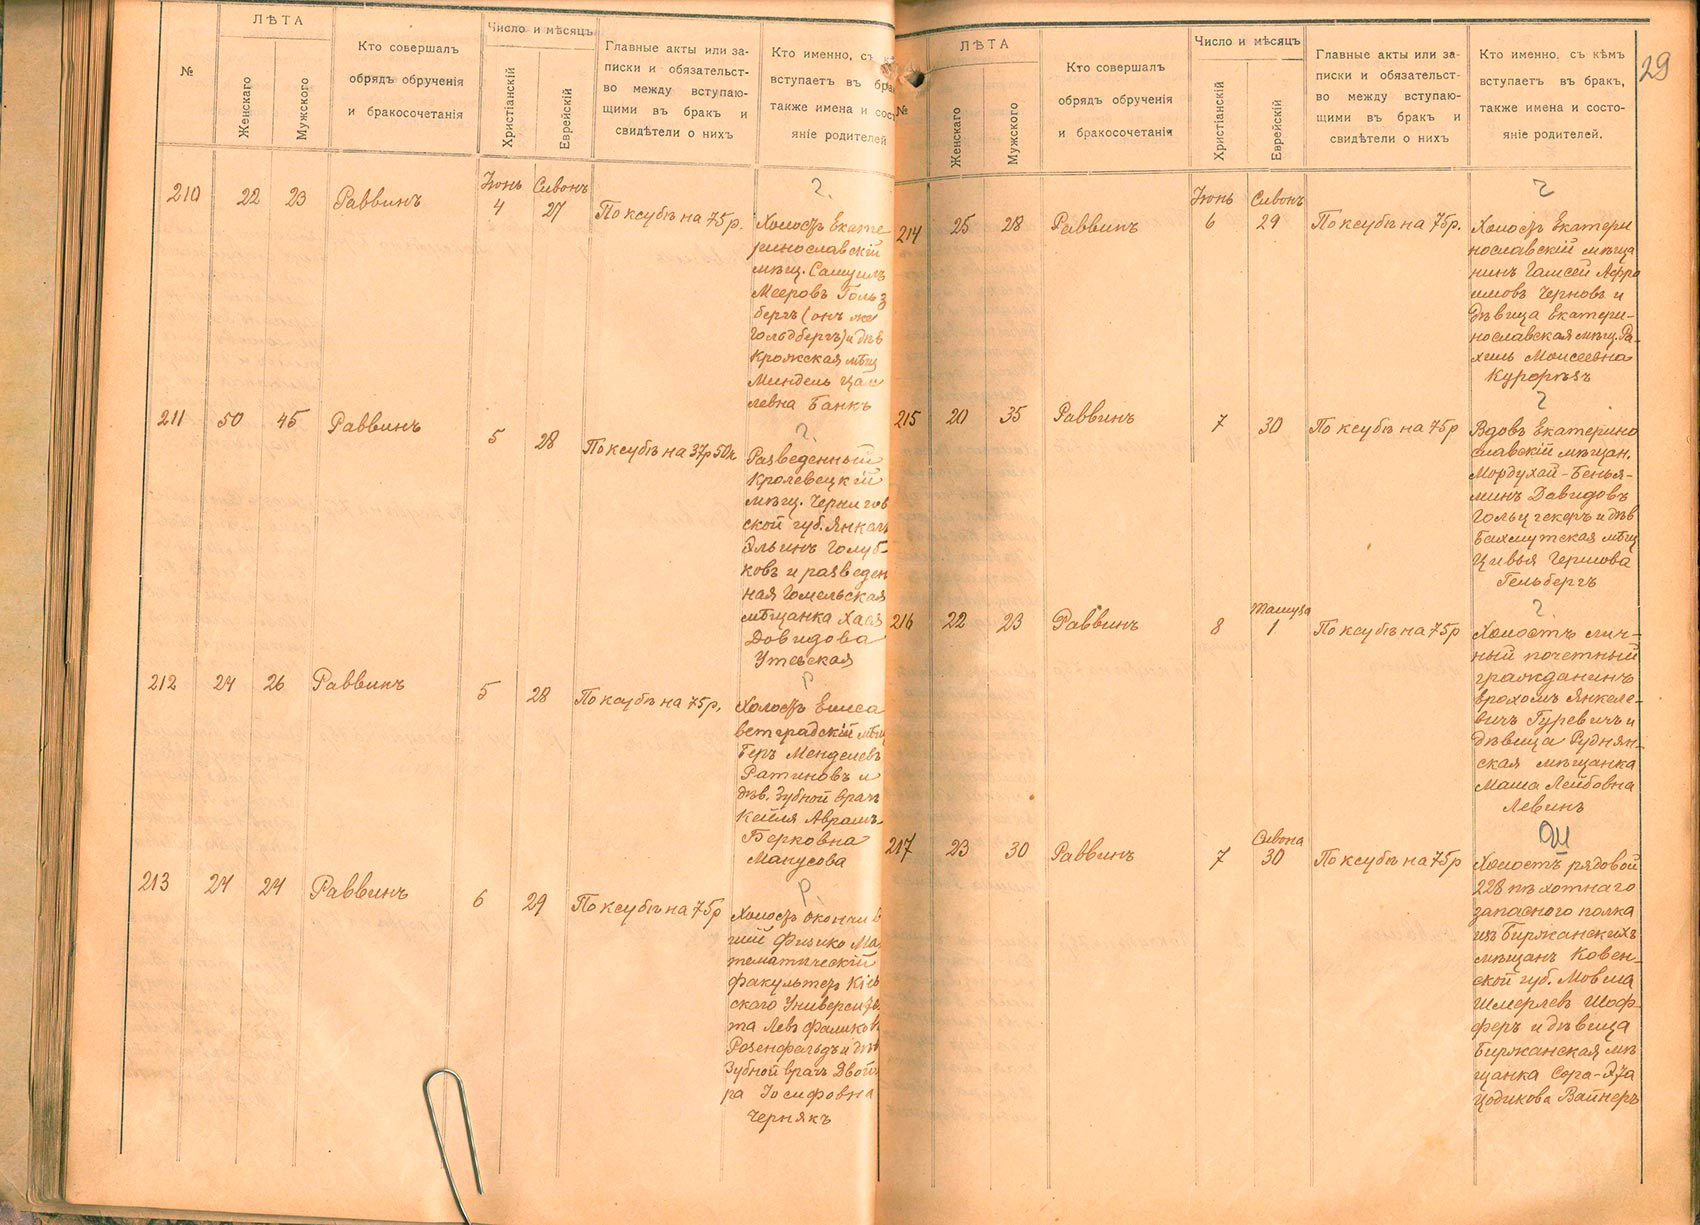 №
ЛѢТА
Женскаго
Мужского
Кто совершалъ
обрядъ обрученія
и бракосочетанія
Число и мѣсяцъ
Христіанскій
Еврейскій
Главные акты или за-
писки и обязательст-
во между вступаю-
щими въ бракъ и
свидѣтели о нихъ
Кто именно, съ
вступаетъ въ
также имена и сост
яніе родителей
210
22
23
Раввинъ
Іюнь
4
Сивонъ
27
По ксубѣ на 75р.
2.
Холостъ Екате
ринославскій
мѣщ. Самуилъ
Мееровъ Гольз
бергъ (онъ же
Гольдбергъ) и дѣв
Крожская мѣщ
Миндель Цал
левна Банкъ
211
50
45
Раввинъ
5
28
По ксубѣ на 37р 50к
2.
Разведенный
Кролевецкій
мѣщ. Чернигов
ской губ. Янкель
Эльинъ Голуб-
ковъ и разведен
ная Гомельская
мѣщанка Хася
Довидова
Утевская
212
24
26
Раввинъ
5
28
По ксубѣ на 75р.
Р
Холостъ Елиса
ветградскій мѣщ
Беръ Менделевъ
Ратиновъ и
дѣв. Зубной врачъ
Кейля Аврамъ-
Берковна
Манусова
213
24
24
Раввинъ
6
29
По ксубѣ на 75р
Р.
Холостъ окончив
шій Физико Ма
тематическій
факультетъ Кіев
скаго Университе
та Левъ Фаликов
Розенфельдъ и дѣв
Зубной врачъ Двой
ра Іосифовна
Чернякъ
29
№
ЛѢТА
Женскаго
Мужского
Кто совершалъ
обрядъ обрученія
и бракосочетанія
Число и мѣсяцъ
Христіанскій
Еврейскій
Главные акты или за-
писки и обязательст-
во между вступаю-
щими въ бракъ и
свидѣтели о нихъ
Кто именно, съ кѣмъ
вступаетъ въ бракъ,
также имена и состо-
яніе родителей.
214
25
28
Раввинъ
Іюнь
6
Сивонъ
29
По ксубѣ на 75р.
2
Холостъ Екатери
нославскій мѣща
нинъ Гамсей Афро
имовъ Черновъ и
дѣвица Екатери-
нославская мѣщ. Ра-
хиль Моисеевна
215
20
35
Раввинъ
7
30
По ксубѣ на 75р
2
Вдовъ Екатерино
славскій мѣщан.
Мордухай-Бенья-
минъ Давидовъ
Гольцгекеръ и дѣв
Бахмутская мѣщ
Цивья Гершова
Гельбергъ
216
22
23
Раввинъ
8
Тамуза
1
По ксубѣ на 75р
2.
Холостъ лич-
ный почетный
гражданинъ
Врохомъ Янкеле-
вичъ Гуревичъ и
дѣвица Руднян-
ская мѣщанка
Маша Лейбовна
Левинъ
217
23
30
Раввинъ
7
Сивона
30
По ксубѣ на 75р
Холостъ рядовой
228 пѣхотнаго
запасного полка
изъ Биржанскихъ
мѣщанъ Ковен-
ской губ. Мовша
Шмерлевъ Шоф-
феръ и дѣвица
Биржанская мѣ
щанка Сора-Эта
Цодикова Вайнеръ